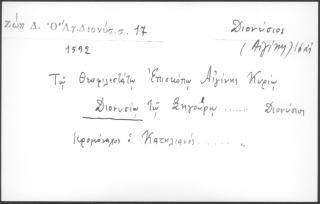 Ζώη Λ. Ὁ Ἅγ. Διονύσ. σ. 17
Διονύσιος
(Αἰγίνης)
1592
Τῷ Θεοφιλεστάτῳ Ἐπισκόπῳ Αἰγίνης Κυρίῳ
Διονυσίῳ τῷ Σηγούρῳ ...... Διονύσιος
ἱερομόναχος ὁ Κατηλιανός ........